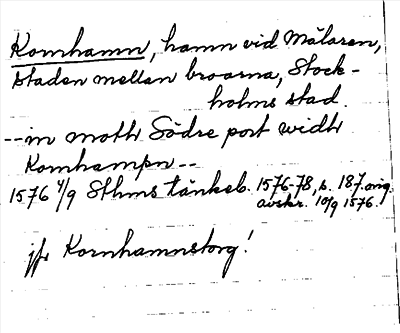 Kornhamn, hamn vid Mälaren,
staden mellan broarna, Stock-
holms stad.
--in moth Södre port widh
Kornhampn--
1576 4/9 Sthms tänkeb. 1576-78, s. 187. orig.
avskr. 10/9 1576.
jfr Kornhamnstorg!